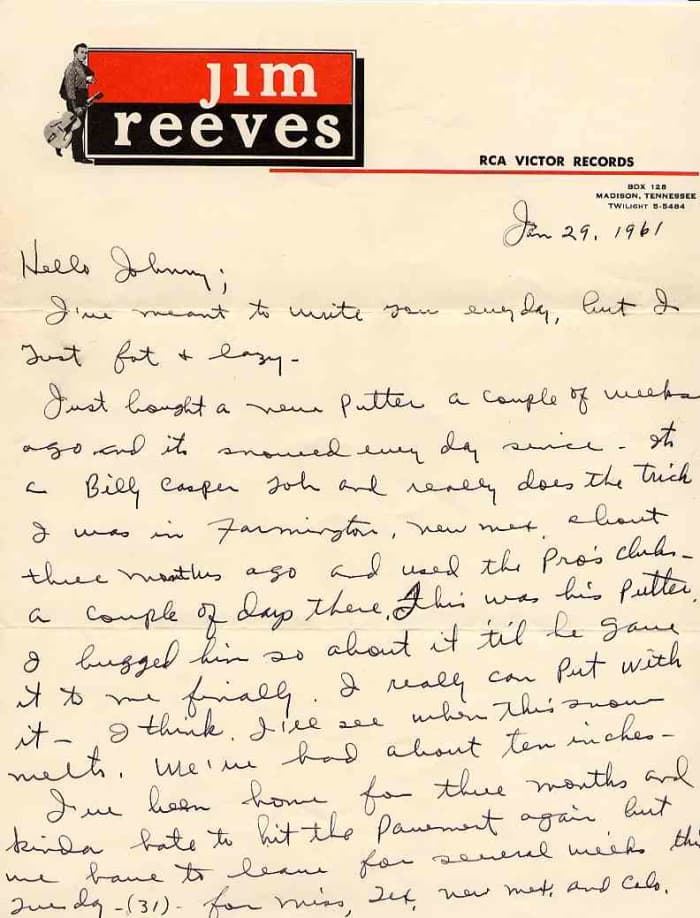 jim
reeves
RCA VICTOR RECORDS
BOX 128
MADISON, TENNESSEE
TWILIGHT 5-5484
Jan 29, 1961
Hello Johnny;
I've meant to write you everyday, but I
Just fat + lazy -
Just bought a new Putter a couple of weeks
ago and its snowed every day since - Its
a Billy Casper Job and really does the trick
I was in Farmington, New Mex. about
three months ago and used the Pro's clubs -
a couple of days there. This was his Putter.
I bugged him so about it 'til he gave
it to me finally. I really can Put with
it - I think. I'll see when this snow
melts. We've had about ten inches -
I've been home for three months and
kinda hate to hit the Pavement again but
we have to leave for several weeks this
Tuesday - (31) - for Miss, Tex, New Mex, and Colo.